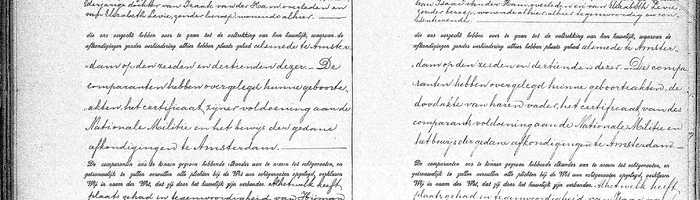 derjarige dochter van Izaak van der Ham, overleden en
van Elizabeth Levie, zonder beroep, wonende alhier.
die ons verzocht hebben over te gaan tot de voltrekking van hun huwelijk, waarvan de
afkondigingen zonder verhindering alhier hebben plaats gehad alsmede te Amster
dam op den zesden en dertienden dezer. De
comparanten hebben overgelegd hunne geboorte
akten, het certificaat zijner voldoening aan de
Nationale Militie en het bewijs der gedane
afkondigingen te Amsterdam.
De comparanten ons te kennen gegeven hebbende elkander aan te nemen tot echtgenooten, en
getrouwelijk te zullen vervullen alle plichten bij de Wet aan echtgenooten opgelegd, verklaren
Wij in naam der Wet, dat zij door het huwelijk zijn verbonden. Het welk heeft
plaats gehad in tegenwoordigheid van
van Elizabeth Levie,
zonder beroep, wonende alhier tegenwoordig en con
senteerende.
die ons verzocht hebben over te gaan tot de voltrekking van hun huwelijk, waarvan de
afkondigingen zonder verhindering alhier hebben plaats gehad alsmede te Amster
dam op den zesden en dertienden dezer. De compa
ranten hebben overgelegd hunne geboorteakten, de
doodakte van haren vader, het certificaat van des
comparants voldoening aan de Nationale Militie en
het bewijs der gedane afkondigingen te Amsterdam
De comparanten ons te kennen gegeven hebbende elkander aan te nemen tot echtgenooten, en
getrouwelijk te zullen vervullen alle plichten bij de Wet aan echtgenooten opgelegd, verklaren
Wij in naam der Wet, dat zij door het huwelijk zijn verbonden. Het welk heeft
plaats gehad in tegenwoordigheid van